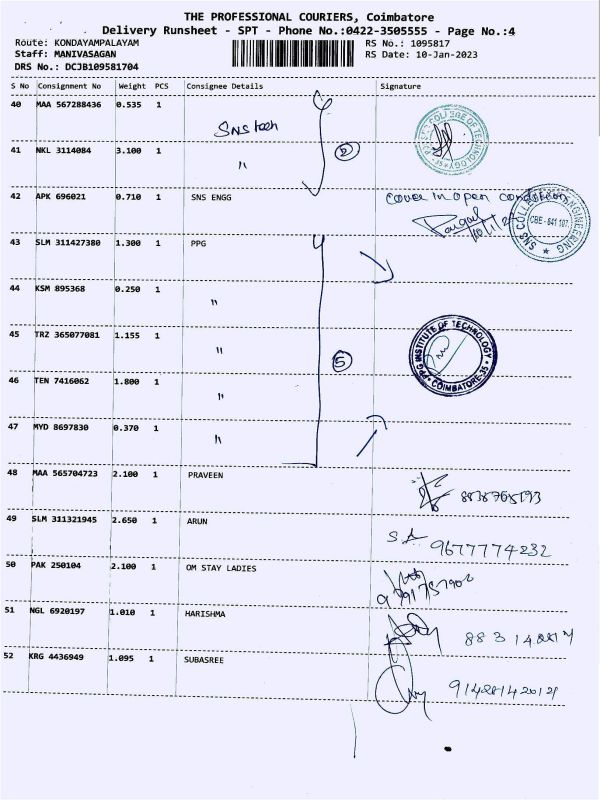 THE PROFESSIONAL COURIERS, Coimbatore
Delivery Runsheet - SPT - Phone No.:0422-3505555 - Page No.:4
Route: KONDAYAMPALAYAM
RS No.: 1095817
Staff: MANIVASAGAN
RS Date: 10-Jan-2023
DRS No.: DCJB109581704
S No Consignment No Weight PCS Consignee Details Signature
40 MAA 567288436 0.535 1
SNS tech
COLLEGE OF TECHNOLOGY
41 NKL 3114084 3.100 1 " 2
42 APK 696021 0.710 1 SNS ENGG cover in open condition
SNS COLLEGE OF ENGINEERING
CBE - 641 107.
43 SLM 311427380 1.300 1 PPG
44 KSM 895368 0.250 1 "
45 TRZ 365077081 1.155 1 " 5
PPG INSTITUTE OF TECHNOLOGY
COIMBATORE-35
46 TEN 7416062 1.800 1 "
47 MYD 8697830 0.370 1 "
48 MAA 565704723 2.100 1 PRAVEEN
49 SLM 311321945 2.650 1 ARUN SA 9677774232
50 PAK 250104 2.100 1 OM STAY LADIES
51 NGL 6920197 1.010 1 HARISHMA
52 KRG 4436949 1.095 1 SUBASREE